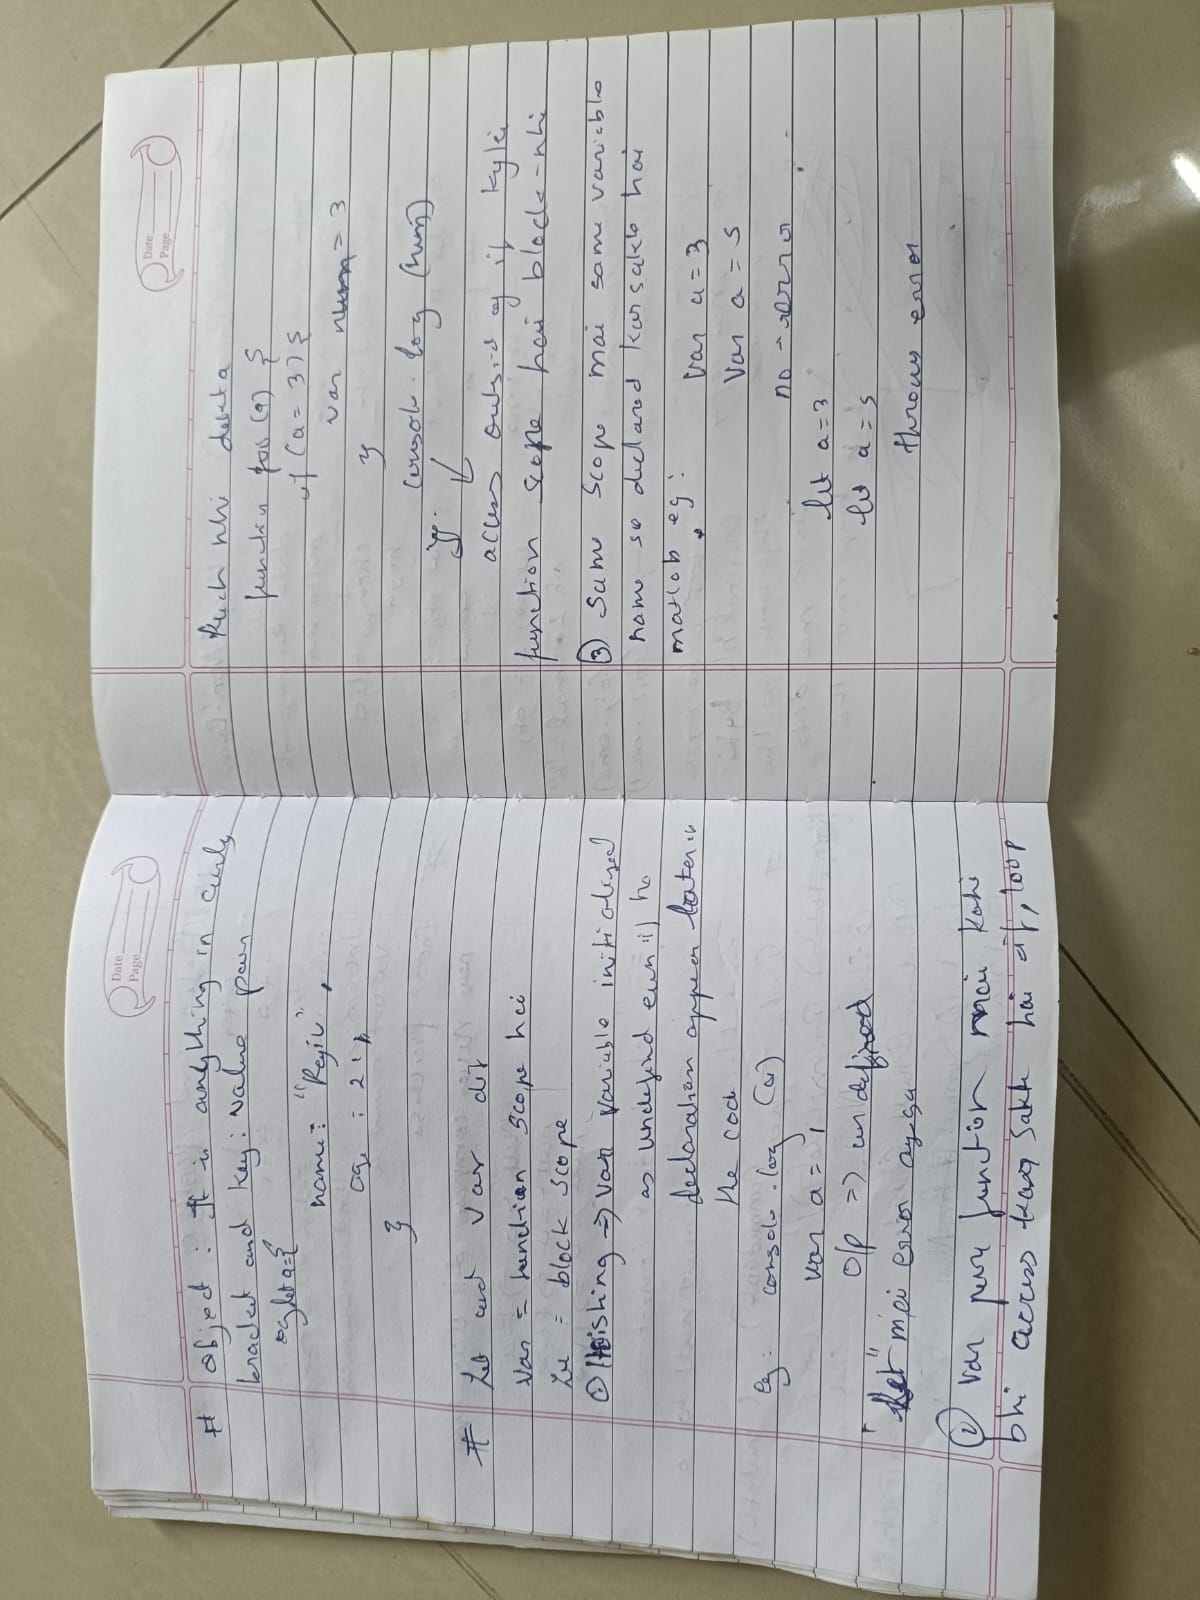 Date
Page
# object : It is anything in curly
bracket and key : value pair
eg let a = {
name : "Rajiv",
age : 21,
}
# Let and var dif
Var = function scope hai
Le = block scope
① Hoishing => Var variable initialized
as undefind even if he
declaration appear later in
the code
eg: console.log (a)
var a = 1
O/P => undefined
"Let" mai error ayga
② var pure function mai kahi
bhi access kar sakte hai if, loop
Date
Page
kuch nhi dekta
function fos (a) {
if (a = 3) {
var num = 3
}
console.log (num)
}
access outsid of if kyki
function scope hai block-nhi
③ Same scope mai same variable
name se declared kar sakte hai
matlab eg:
var a = 3
Var a = 5
no - error
let a = 3
let a = 5
throws error